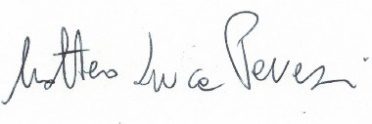 Matteo Luca Pevesi